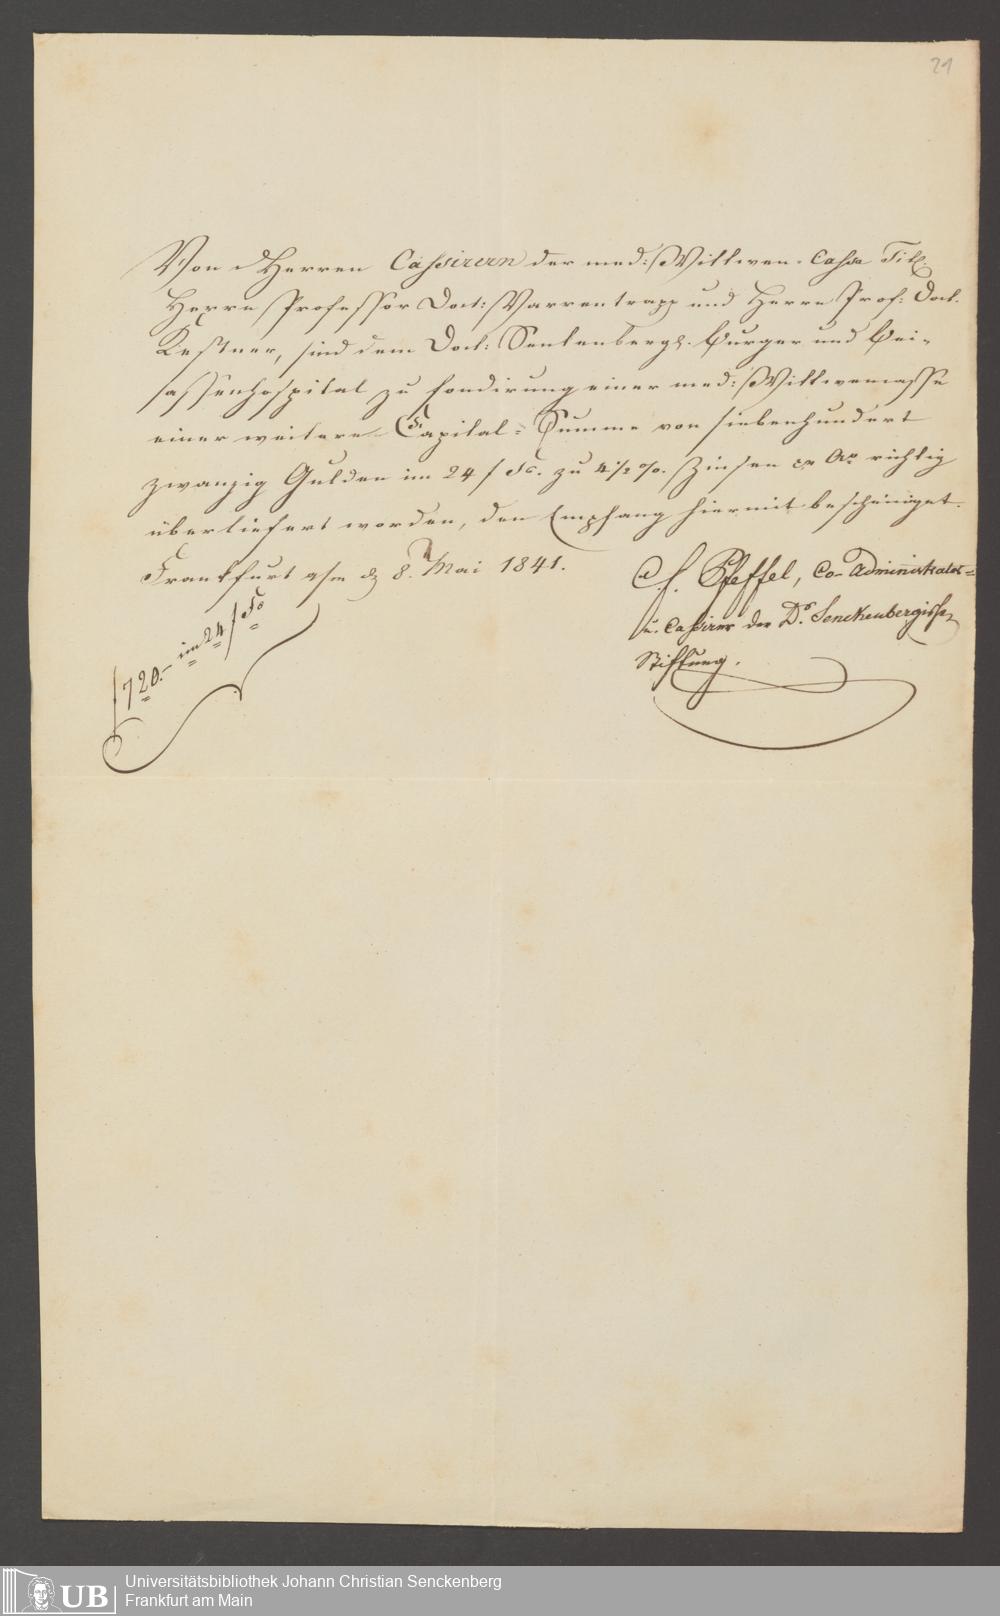 21
Von d Herren Cassirern der med: Wittwen-Cassa Titl
Herrn Professor Doct: Varrentrapp und Herrn Prof: Doct.
Kestner, sind dem Doct: Senkenbergs. Burger und Bei-
sassenhospital zu fondirung einer med: Wittwencasse
einer weitere Capital-Summe von siebenhundert
zwanzig Gulden im 24 f Fs. zu 4 1/2 %. Zinsen pr Ao richtig
überliefert worden, den Empfang hiermit bescheiniget.
Frankfurt a/m d 8. Mai 1841.
C. f. Pfeffel, Co-Administrator-
u. Cassirer der Drs. Senckenbergische
Stiftung.
f 720.- im 24 f Fs
UB
Universitätsbibliothek Johann Christian Senckenberg
Frankfurt am Main